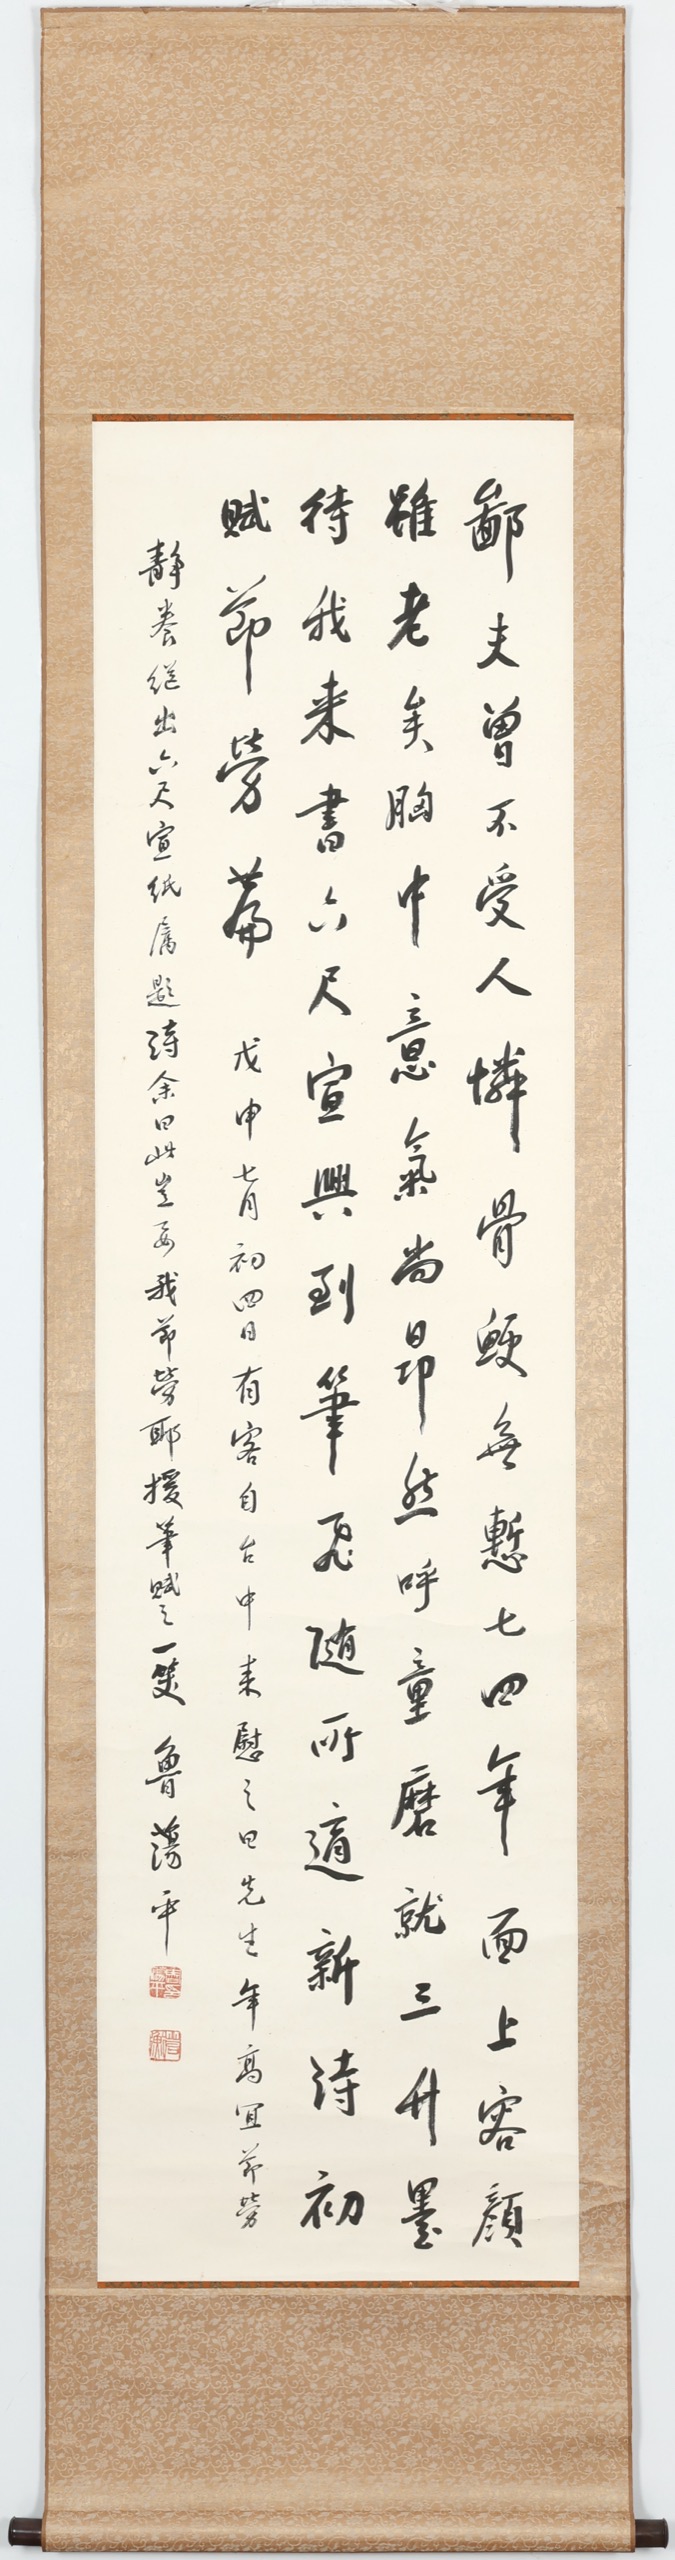 鄙夫曾不受人憐骨鯁無慙七四年面上容顏
雖老矣胸中意氣尚昂然呼童磨就三升墨
待我來書六尺宣興到筆飛隨所適新詩初
賦節勞篇 戊申七月初四日有客自台中來慰之曰先生年高宜節勞
靜養繼出六尺宣紙屬題詩余曰此豈要我節勞耶援筆賦之一笑 魯蕩平